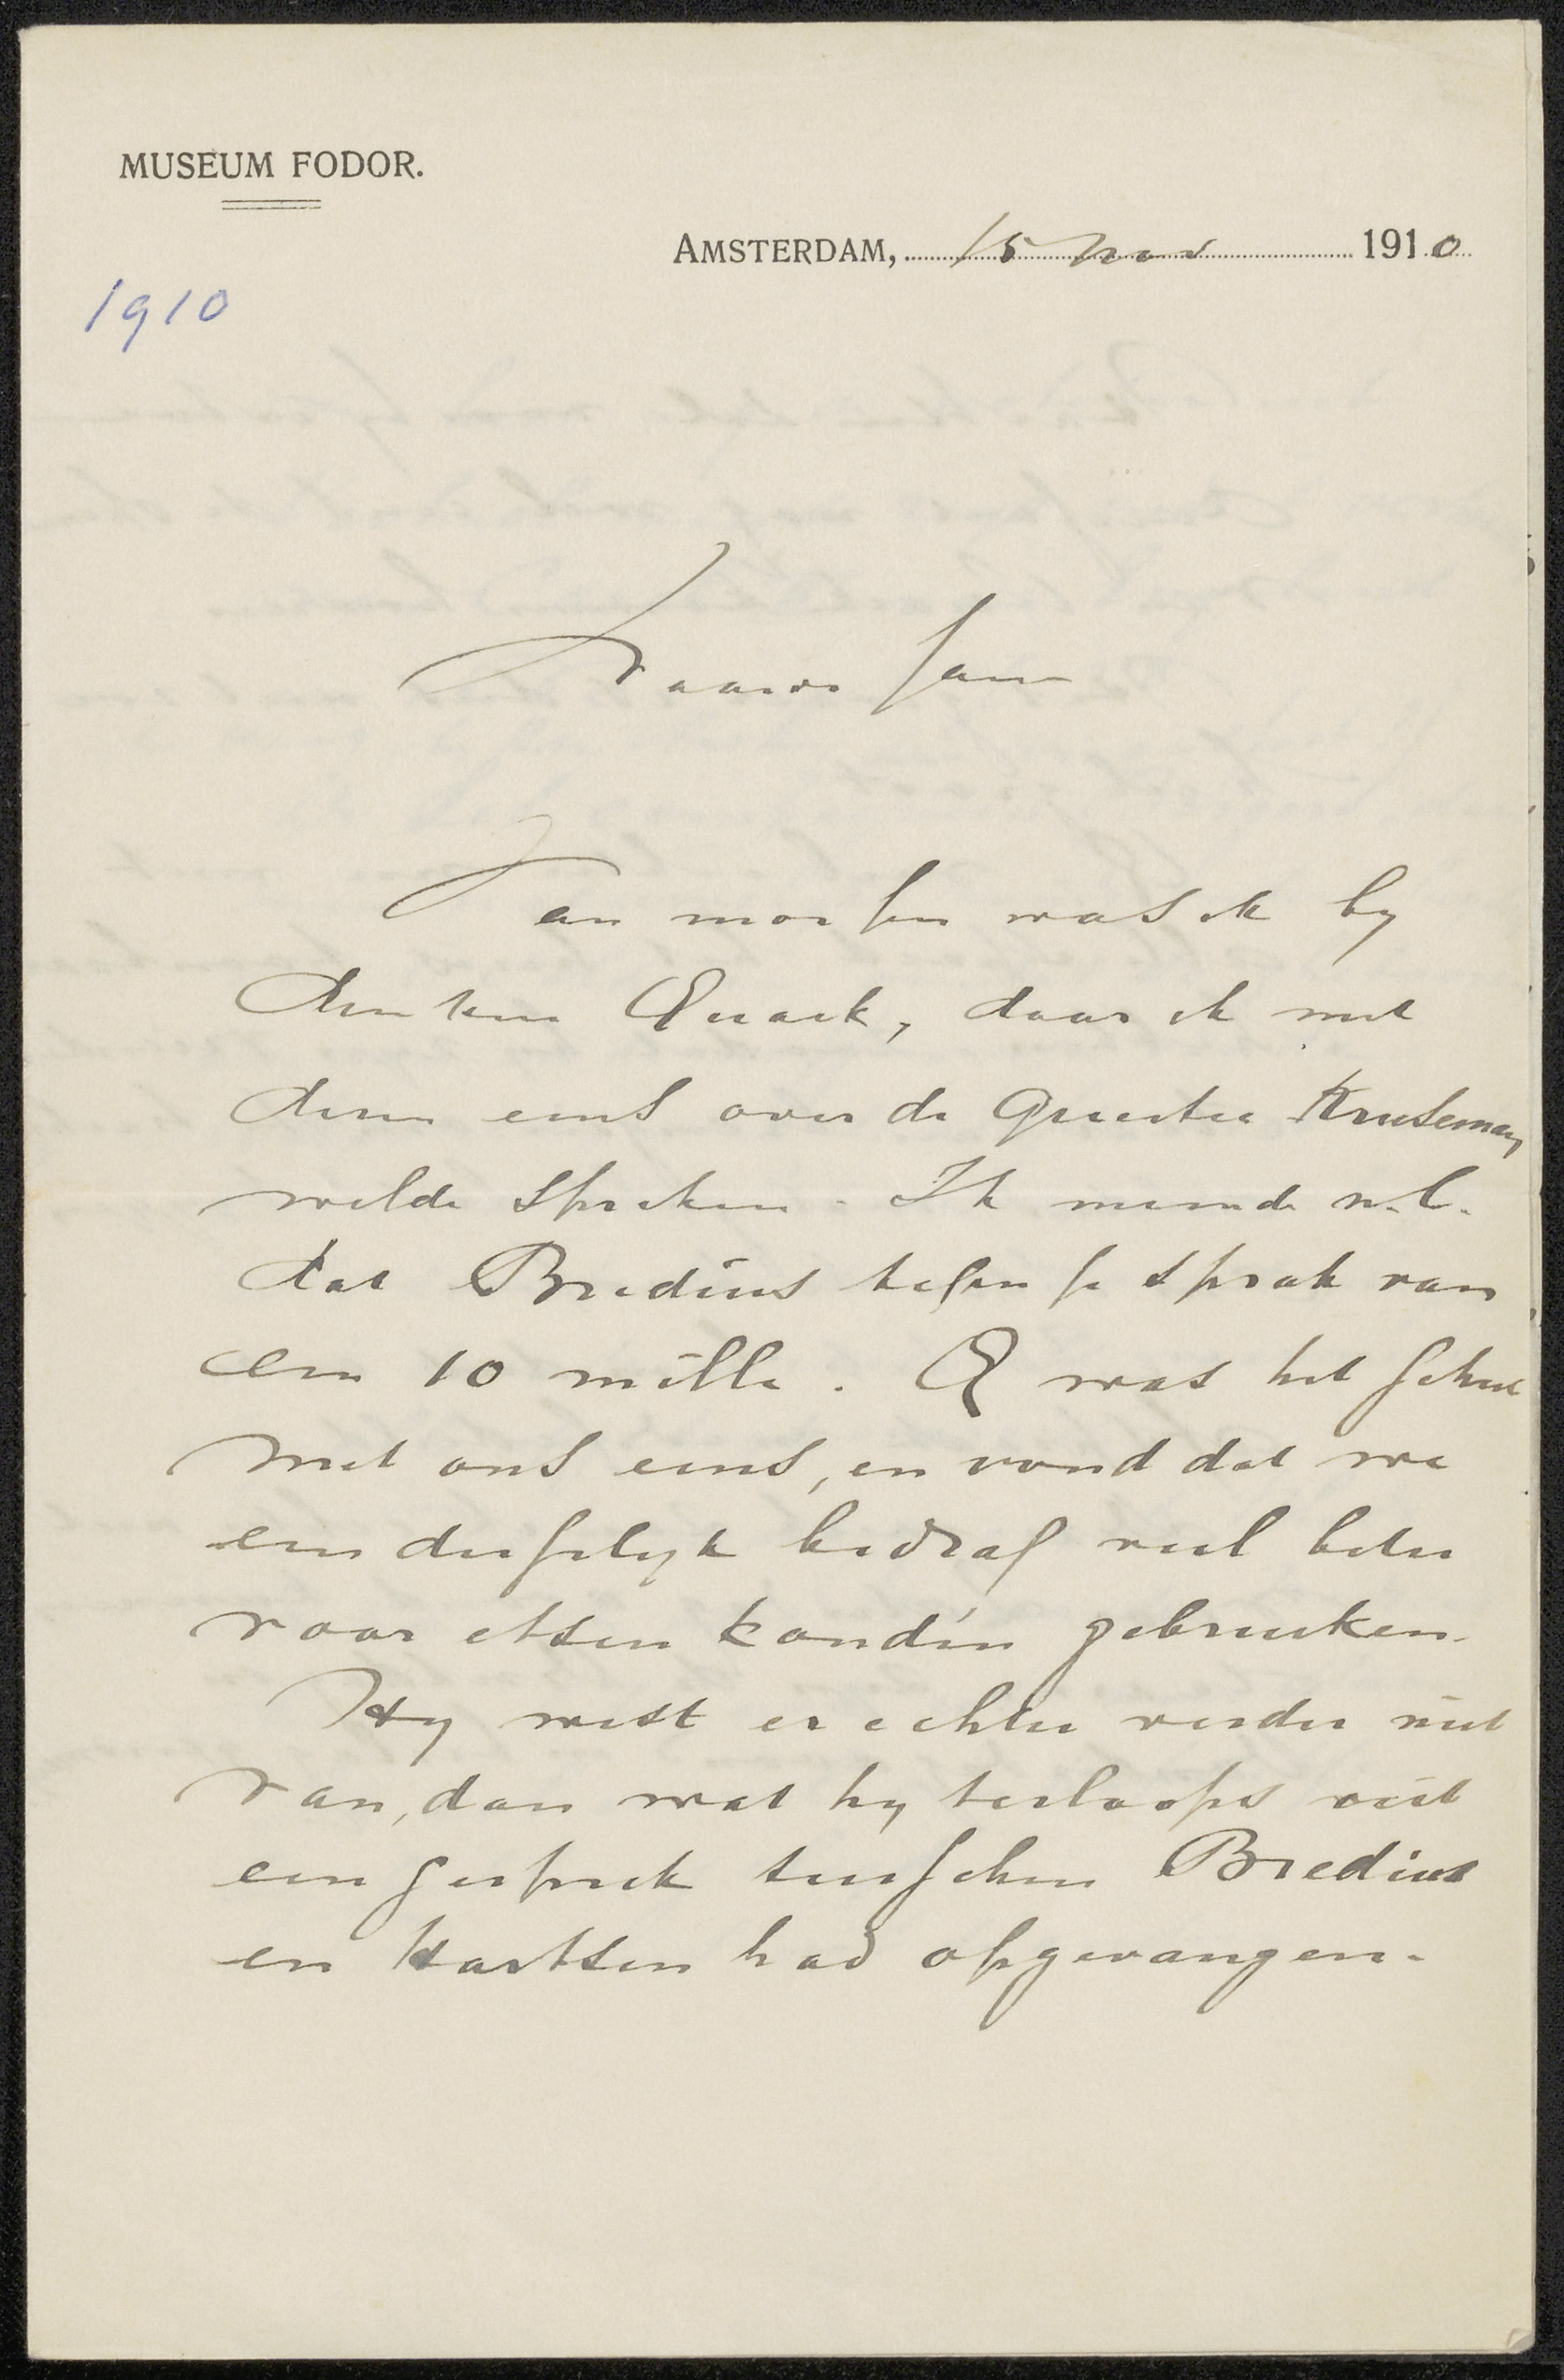 MUSEUM FODOR.
AMSTERDAM, 15 Nov 1910
1910
Waarde Jan
Van morgen was ik by
den heer Quack, daar ik met
dezen eens over de questie Kruseman
wilde spreken. Ik meende n.l.
dat Bredius tegen je sprak van
een 10 mille. Q was het geheel
met ons eens, en vond dat we
een dergelyk bedrag veel beter
voor etsen konden gebruiken.
Hy wist er echter verder niet
van, dan wat hy terloops uit
een gesprek tusschen Bredius
en Hartsen had opgevangen.